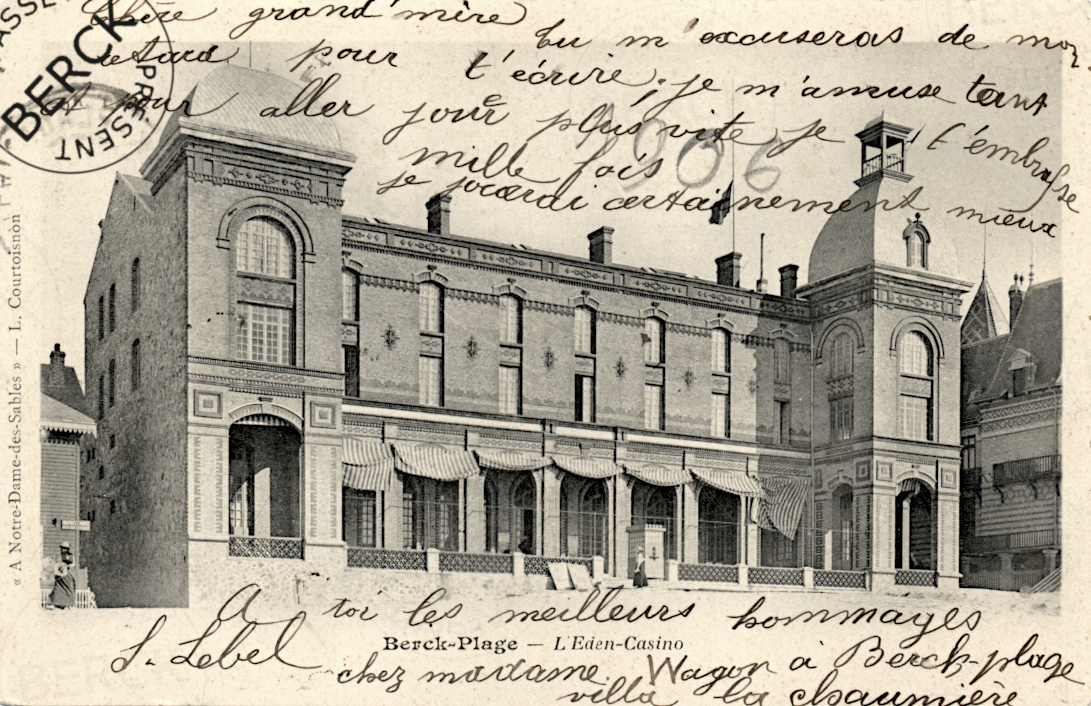 Chère grand'mère
tu m'excuseras de mon
retard pour t'écrire; je m'amuse tant
et pour aller jouer plus vite je t'embrasse
mille fois
je jouerai certainement mieux
1906
PASSE
BERCK
PRESENT
« A Notre-Dame-des-Sables » — L. Courtoisnon
A toi les meilleurs hommages
Berck-Plage — L'Eden-Casino
S. Lebel
chez madame Wagon à Berck-plage
villa la chaumière